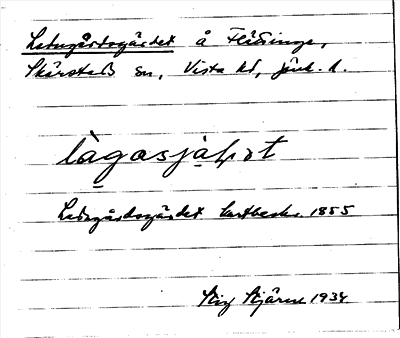 Ladugårdsgärdet å Flisinge,
Skärstads sn, Vista hd, Jönk. l.
làgasjaḷɔt
Ladugårdsgärdet kartbeskr. 1855
Stig Stjärne 1934